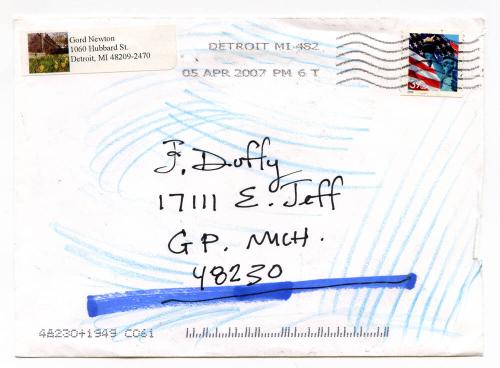 Gord Newton
1060 Hubbard St.
Detroit, MI 48209-2470
DETROIT MI 482
05 APR 2007 PM 6 T
J. Duffy
17111 E. Jeff
G P. MICH.
48230
48230+1949 C061